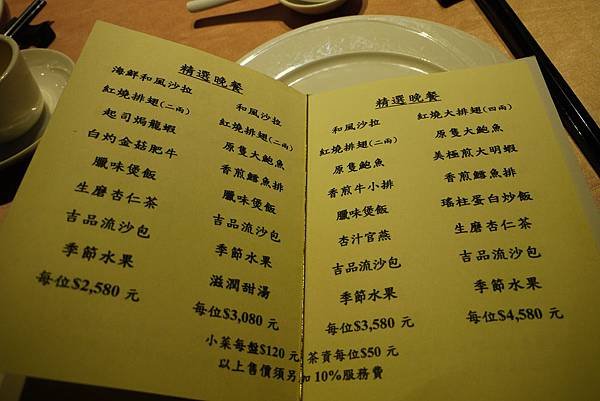 精選晚餐
海鮮和風沙拉
紅燒排翅(二兩)
起司焗龍蝦
白灼金菇肥牛
臘味煲飯
生磨杏仁茶
吉品流沙包
季節水果
每位$2,580 元
和風沙拉
紅燒排翅(二兩)
原隻大鮑魚
香煎鱈魚排
臘味煲飯
吉品流沙包
季節水果
滋潤甜湯
每位$3,080 元
精選晚餐
和風沙拉
紅燒排翅(二兩)
原隻鮑魚
香煎牛小排
臘味煲飯
杏汁官燕
吉品流沙包
季節水果
每位$3,580 元
紅燒大排翅(四兩)
原隻大鮑魚
美極煎大明蝦
香煎鱈魚排
瑤柱蛋白炒飯
生磨杏仁茶
吉品流沙包
季節水果
每位$4,580 元
小菜每盤$120 元 茶資每位$50 元
以上售價須另加 10%服務費